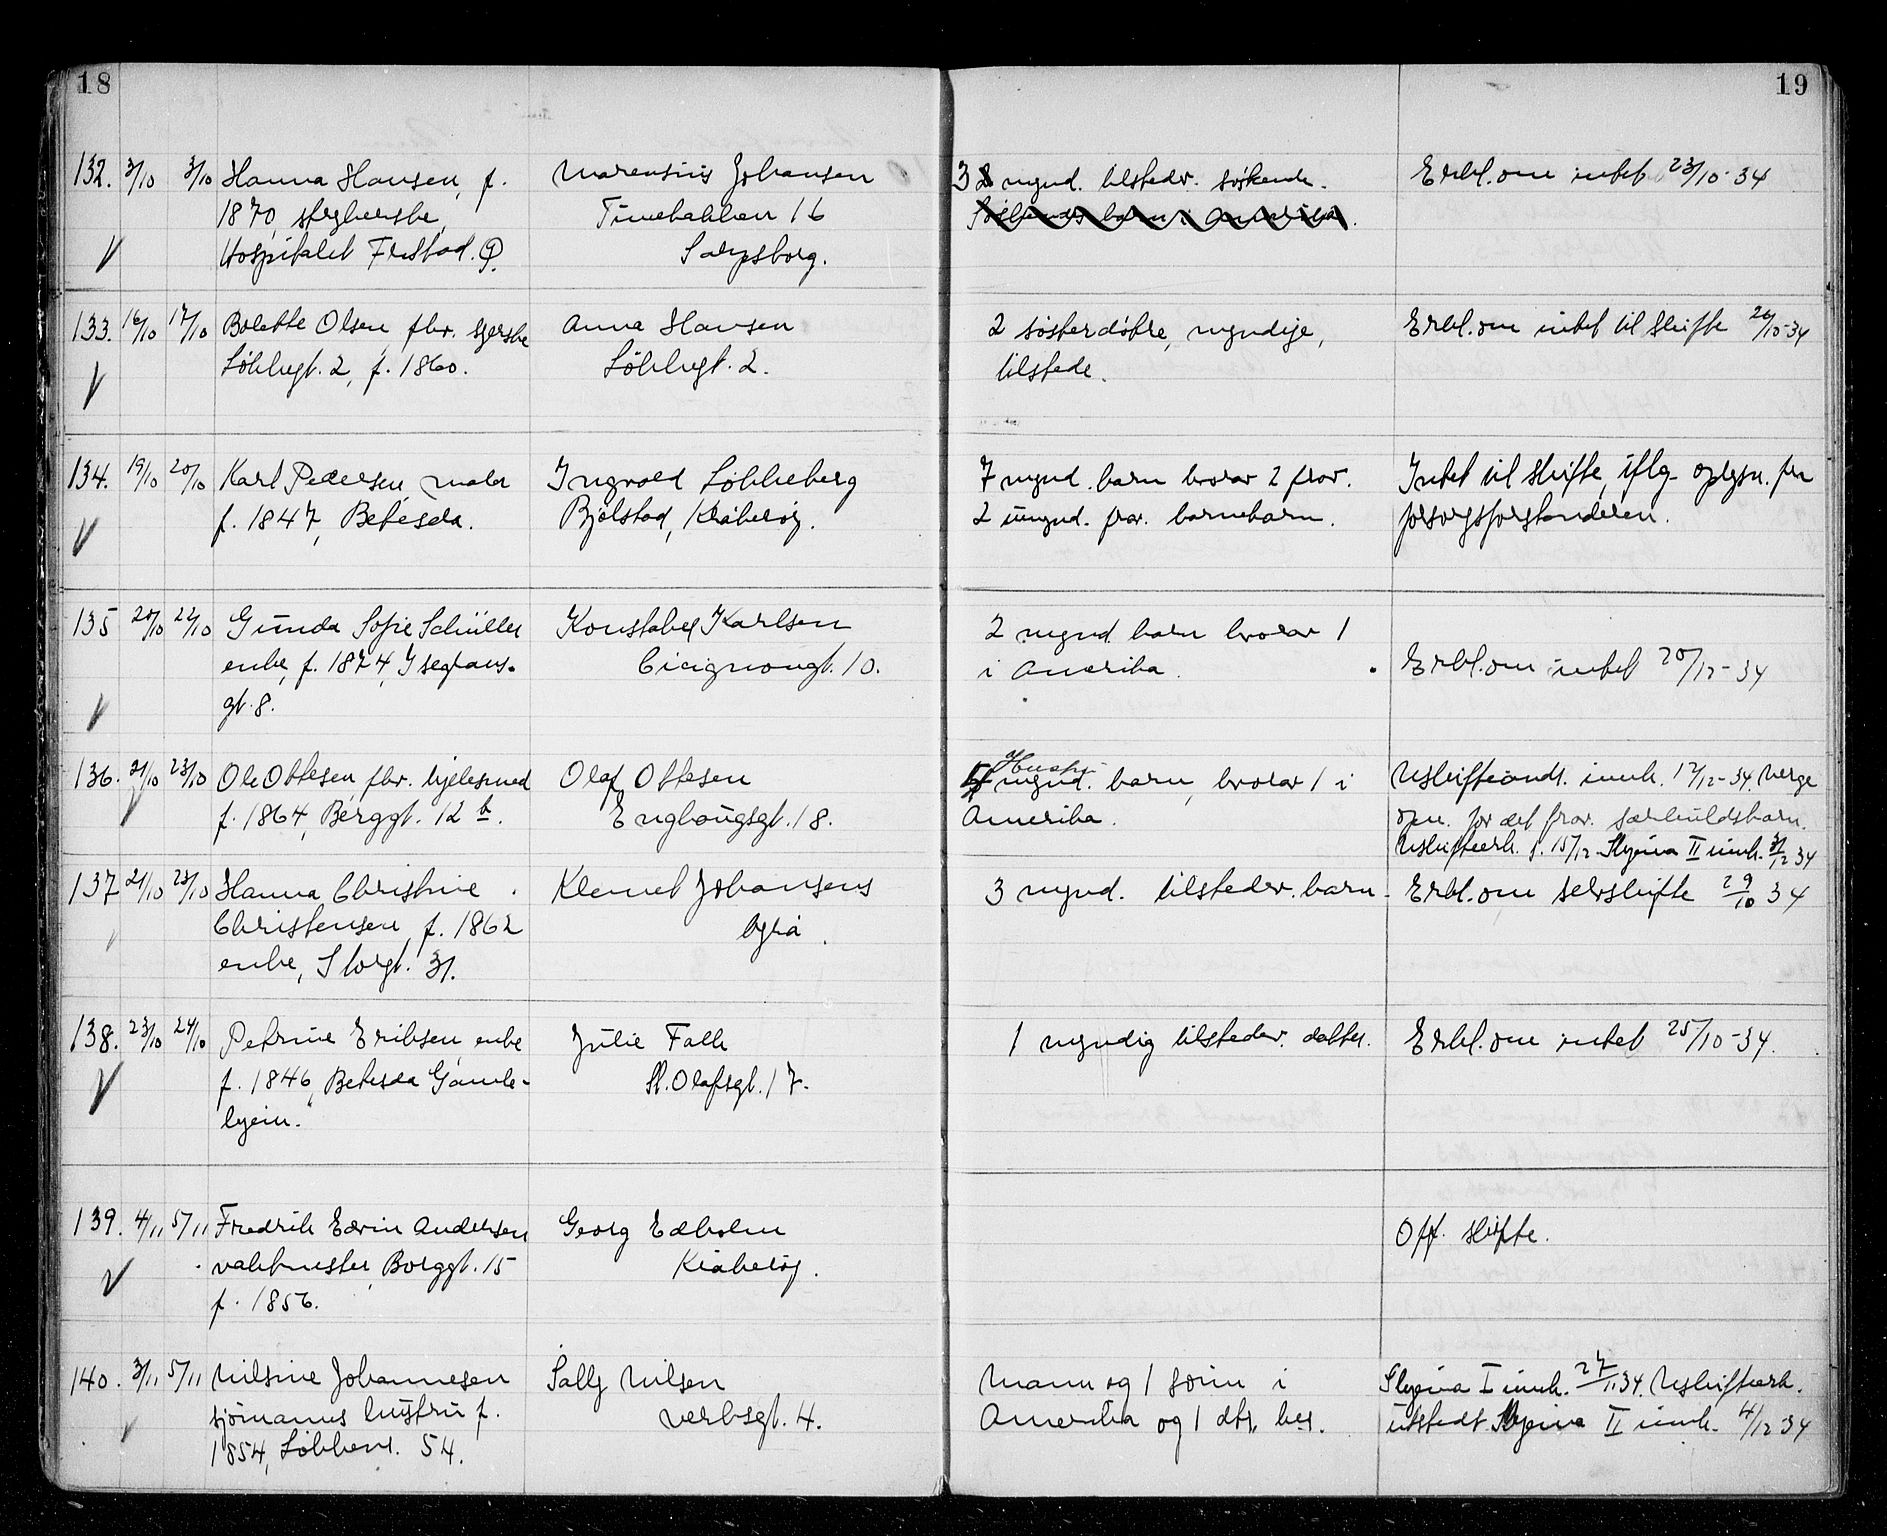 18
19
132. 3/10 3/10 Hanna Hansen, f.
1870,
Hospitalet Frstad.
Marensius Johansen
Tunebakken 16
Sarpsborg.
3 mynd. tilstedv. søskende.
Søskende barn i Amerika.
Erkl. om intet 23/10-34
133. 16/10 17/10 Bolette Olsen, fhv.
Løkkegt. 2, f. 1860.
Anna Hansen
Løkkegt. 2.
2 søsterdøtre, myndige,
tilstede.
Erkl. om intet til skifte 26/10-34
134. 19/10 20/10 Karl Pedersen, maler
f. 1847, Betesda.
Ingvald Løkkeberg
Bjølstad, Kråkerøy.
7 mynd. barn hvorav 2 frav.
2 umynd. frav. barnebarn.
Intet til skifte, iflg. oplysn. fra
forsorgsforstanderen.
135 20/10 22/10 Gunda Sofie Schüller
enke, f. 1874, Isegrans-
gt. 8.
Konstabel Karlsen
Cicignongt. 10.
2 mynd. barn hvorav 1
i Amerika.
Erkl. om intet 20/12-34
136. 21/10 23/10 Ole Ottesen, fhv. hjelesmed
f. 1864, Berggt. 12 b.
Olaf Ottesen
Enghaugsgt. 18.
Hustru
mynd. barn, hvorav 1 i
Amerika.
Uskifteandr. innk. 12/12-34. Verge
opn. for det frav. særkuldsbarn.
Uskifteerk. f. 15/12. Skjema II innk. 31/12 34
137 21/10 23/10 Hanna Christine
Christensen, f. 1862
enke, Storgt. 31.
Klemet Johansens
byrå.
3 mynd. tilstedev. barn.
Erkl. om selvskifte 29/10 34
138. 23/10 24/10 Petrine Eriksen, enke
f. 1846, Betesda Gamle-
hjem."
Julie Falk
St. Olafsgt. 17.
1 myndig tilstedev. datter.
Erkl. om intet 25/10-34.
139. 4/11 5/11 Fredrik Edvin Andersen
vaktmester, Borggt. 15
f. 1856.
Georg Edholm
Kråkerøy.
Off. skifte.
140. 3/11 5/11 Nilsine Johannesen
sjømanns hustru f.
1854, Løkkevn. 54.
Sally Nilsen
Verksgt. 4.
Mann og 1 sønn i
Amerika og 1 dtr. her.
Skjema I innk. 27/11 34. Uskifteerk.
utstedt. Skjema II innk. 4/12 34